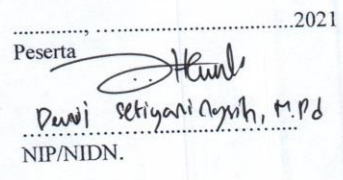 ..............., .......................................2021
Peserta
Dewi Setiyani Ngsih, M.Pd
NIP/NIDN.